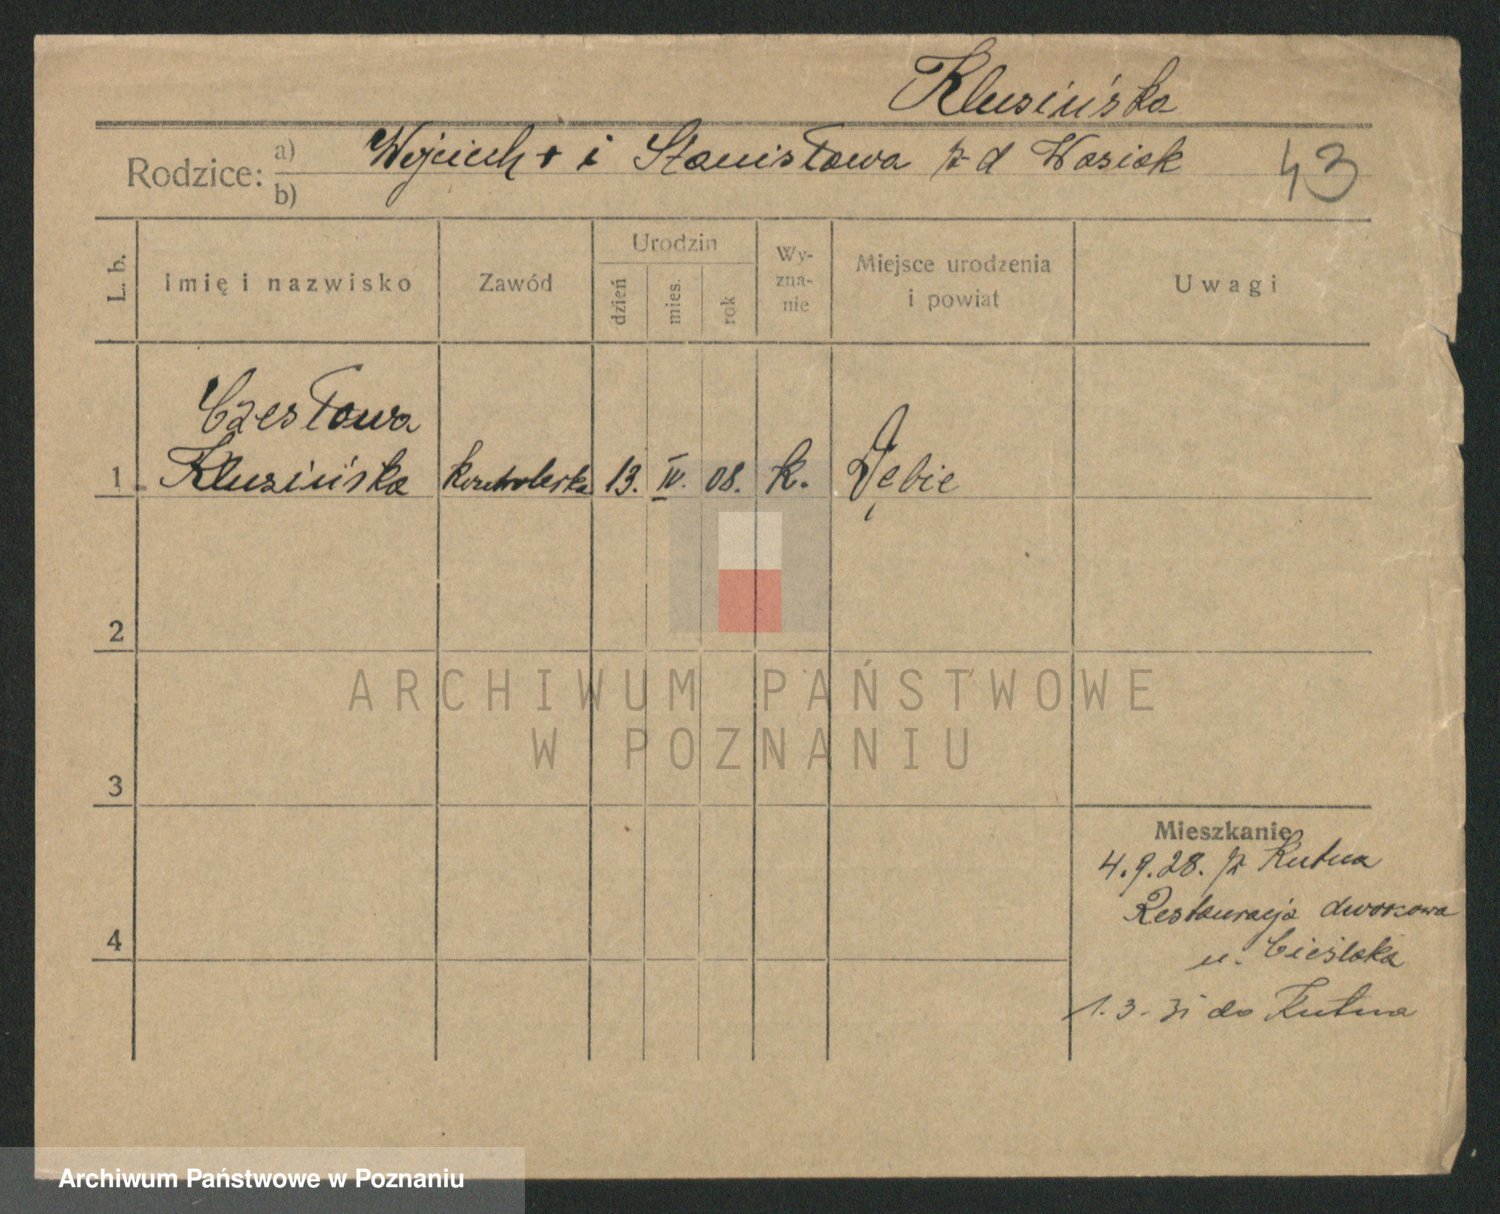 Klusińska
Rodzice: a) b) Wojciech + i Stanisława z d Wasiak
43
L. b. Imię i nazwisko Zawód Urodzin dzień mies. rok Wy-zna-nie Miejsce urodzenia i powiat Uwagi
Czesława
1 Klusińska kontrolerka 13. IV. 08. k. Dębie
2
ARCHIWUM PAŃSTWOWE
W POZNANIU
3
Mieszkanie
4.9.28. z Kutna
Restauracja dworcowa
4
u. Cieślaka
1.3.31 do Kutna
Archiwum Państwowe w Poznaniu